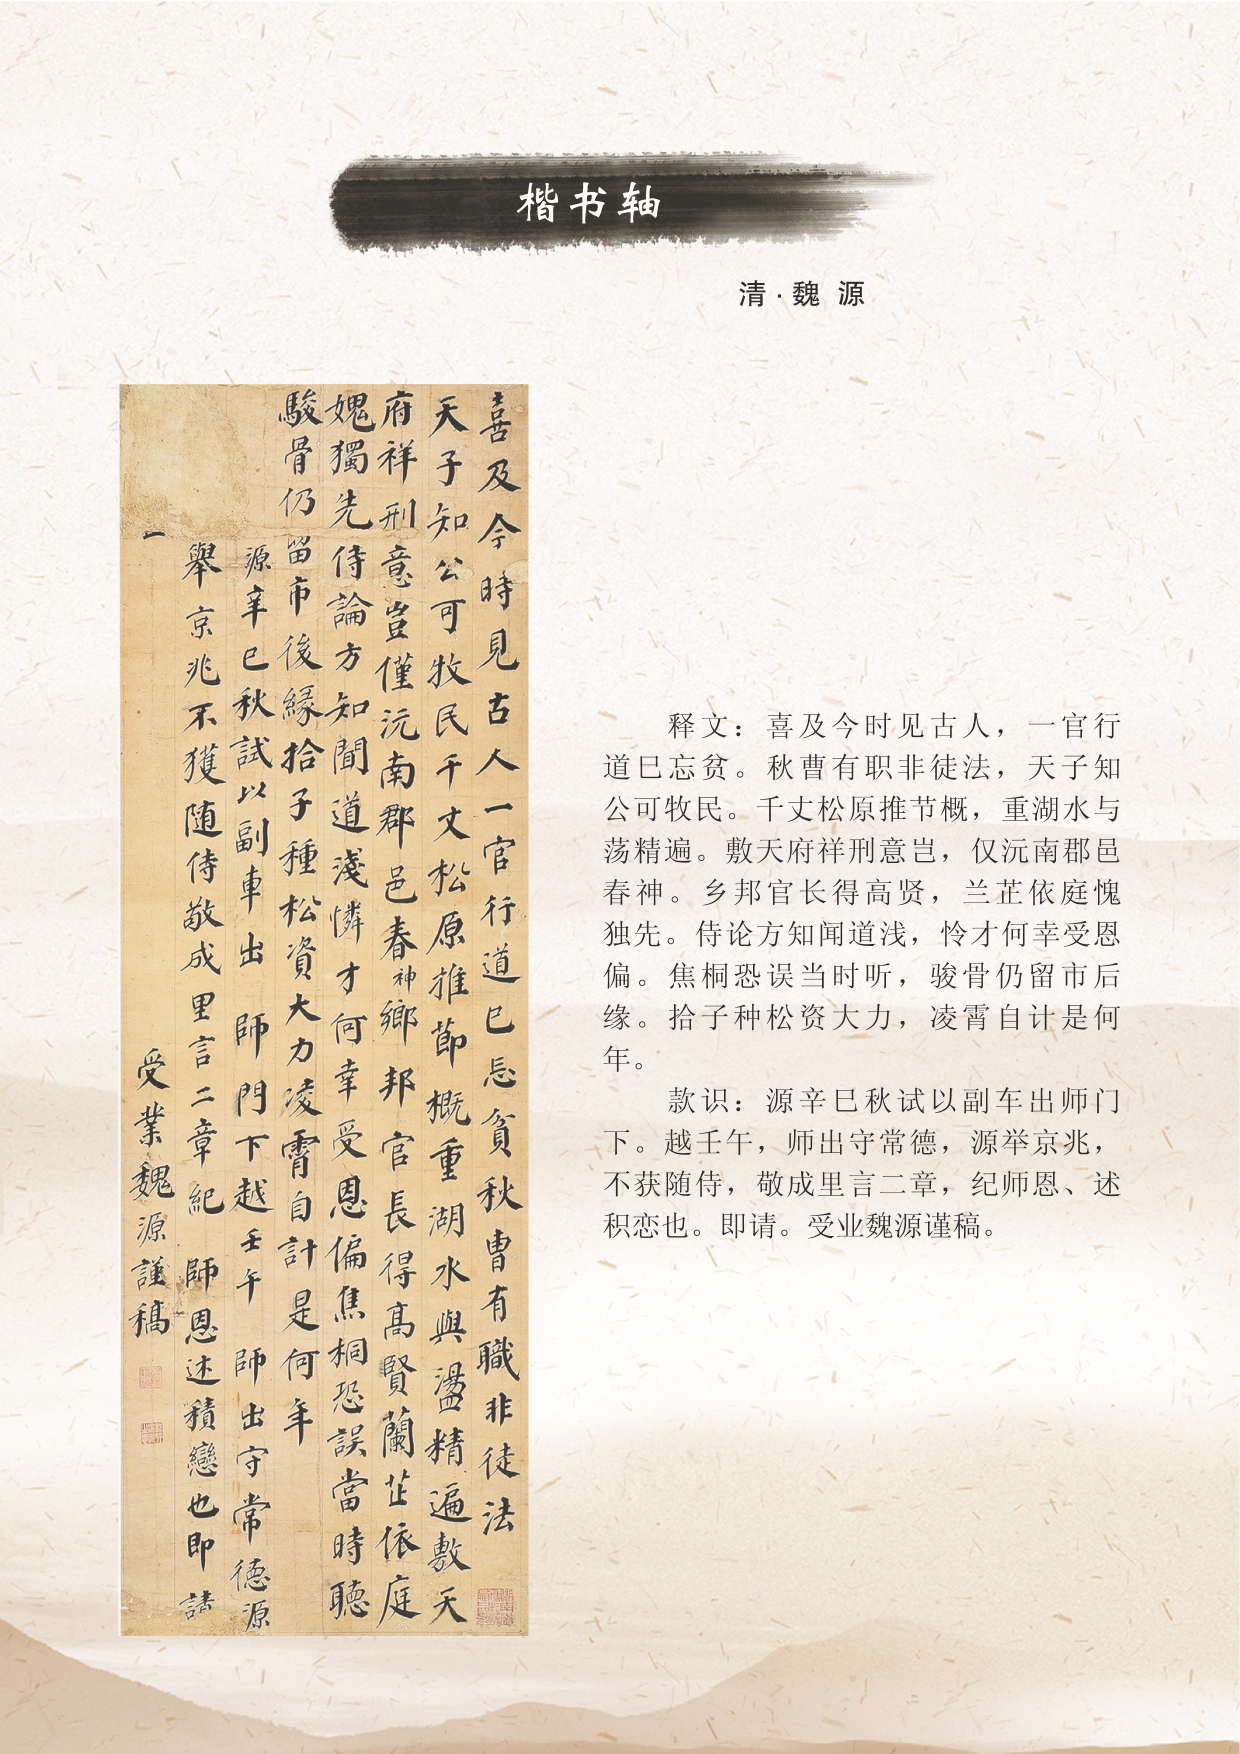 楷书轴
清·魏 源
喜及今時見古人一官行道已忘貧秋曹有職非徒法
天子知公可牧民千丈松原推節概重湖水與盪精遍敷天
府祥刑意豈僅沅南郡邑春神鄉邦官長得高賢蘭芷依庭
媿獨先侍論方知聞道淺憐才何幸受恩偏焦桐恐誤當時聽
駿骨仍留市後緣拾子種松資大力凌霄自計是何年
源辛巳秋試以副車出 師門下越壬午 師出守常德源
舉京兆不獲随侍敬成里言二章紀 師恩述積戀也即請
受業魏源謹稿
释文：喜及今时见古人，一官行
道巳忘贫。秋曹有职非徒法，天子知
公可牧民。千丈松原推节概，重湖水与
荡精遍。敷天府祥刑意岂，仅沅南郡邑
春神。乡邦官长得高贤，兰芷依庭愧
独先。侍论方知闻道浅，怜才何幸受恩
偏。焦桐恐误当时听，骏骨仍留市后
缘。拾子种松资大力，凌霄自计是何
年。
款识：源辛巳秋试以副车出师门
下。越壬午，师出守常德，源举京兆，
不获随侍，敬成里言二章，纪师恩、述
积恋也。即请。受业魏源谨稿。